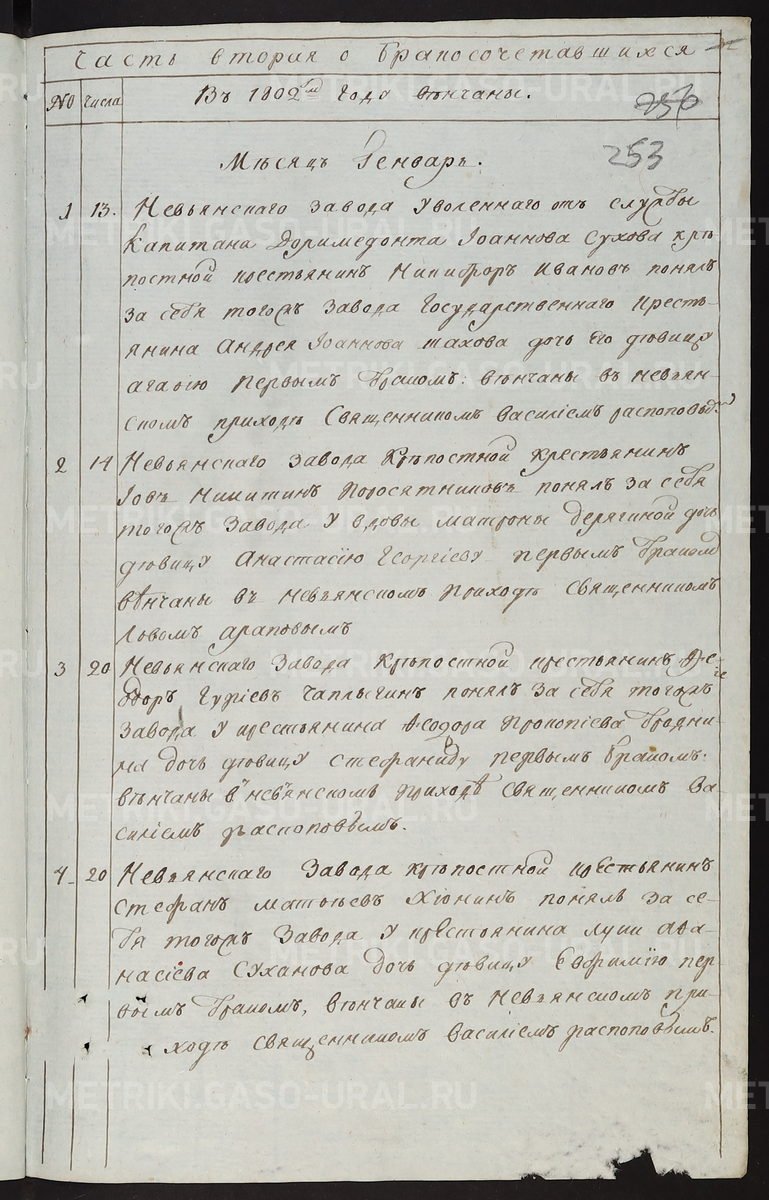 Часть вторая о бракосочетавшихся
№ Числа Въ 1802мъ Года вѣнчаны.
256
253
Мѣсяцъ Генварь.
1 13. Невьянскаго завода уволеннаго отъ службы
капитана Доримедонта Іоаннова Сухова крѣ
постной крестьянинъ Никифоръ Ивановъ понялъ
за себя тогожъ завода Государственнаго кресть-
янина Андрея Іоаннова дочь его дѣвицу
агафію первымъ бракомъ: вѣнчаны въ невьян-
скомъ приходѣ Священникомъ Василіемъ распоповымъ
2 14 Невьянскаго завода Крѣпостной крестьянинъ
Іовъ Никитинъ Поросятниковъ понялъ за себя
тогожъ завода у вдовы матроны дерягиной дочь
дѣвицу Анастасію Георгіеву первымъ бракомъ
вѣнчаны въ невьянскомъ приходѣ священникомъ
Іовомъ араповымъ
3 20 Невьянскаго завода крѣпостной крестьянинъ Ѳе-
доръ Гуріевъ Чаплыгинъ понялъ за себя тогожъ
завода у крестьянина Ѳеодора Прокопіева бродни-
на дочь дѣвицу стефаниду первымъ бракомъ:
вѣнчаны въ невьянскомъ приходѣ священникомъ Ва
силіемъ распоповымъ.
4 20 Невьянскаго Завода крѣпостной крестьянинъ
Стефанъ матѳеевъ Хіонинъ понялъ за се-
бя тогожъ завода у крестьянина луки аѳа-
насіева Суханова дочь дѣвицу Евфимію пер-
вымъ бракомъ, вѣнчаны въ невьянскомъ при-
ходѣ священникомъ василіемъ распоповымъ.
METRIKI.GASO-URAL.RU